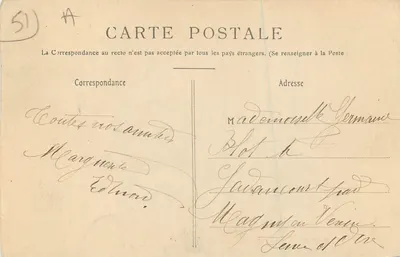 51 A
CARTE POSTALE
La Correspondance au recto n'est pas acceptée par tous les pays étrangers. (Se renseigner à la Poste
Correspondance
Adresse
Toutes nos amitiés
Marguerite
Edmond
Mademoiselle Germaine
Blot
par
Magny en Vexin
Seine et Oise